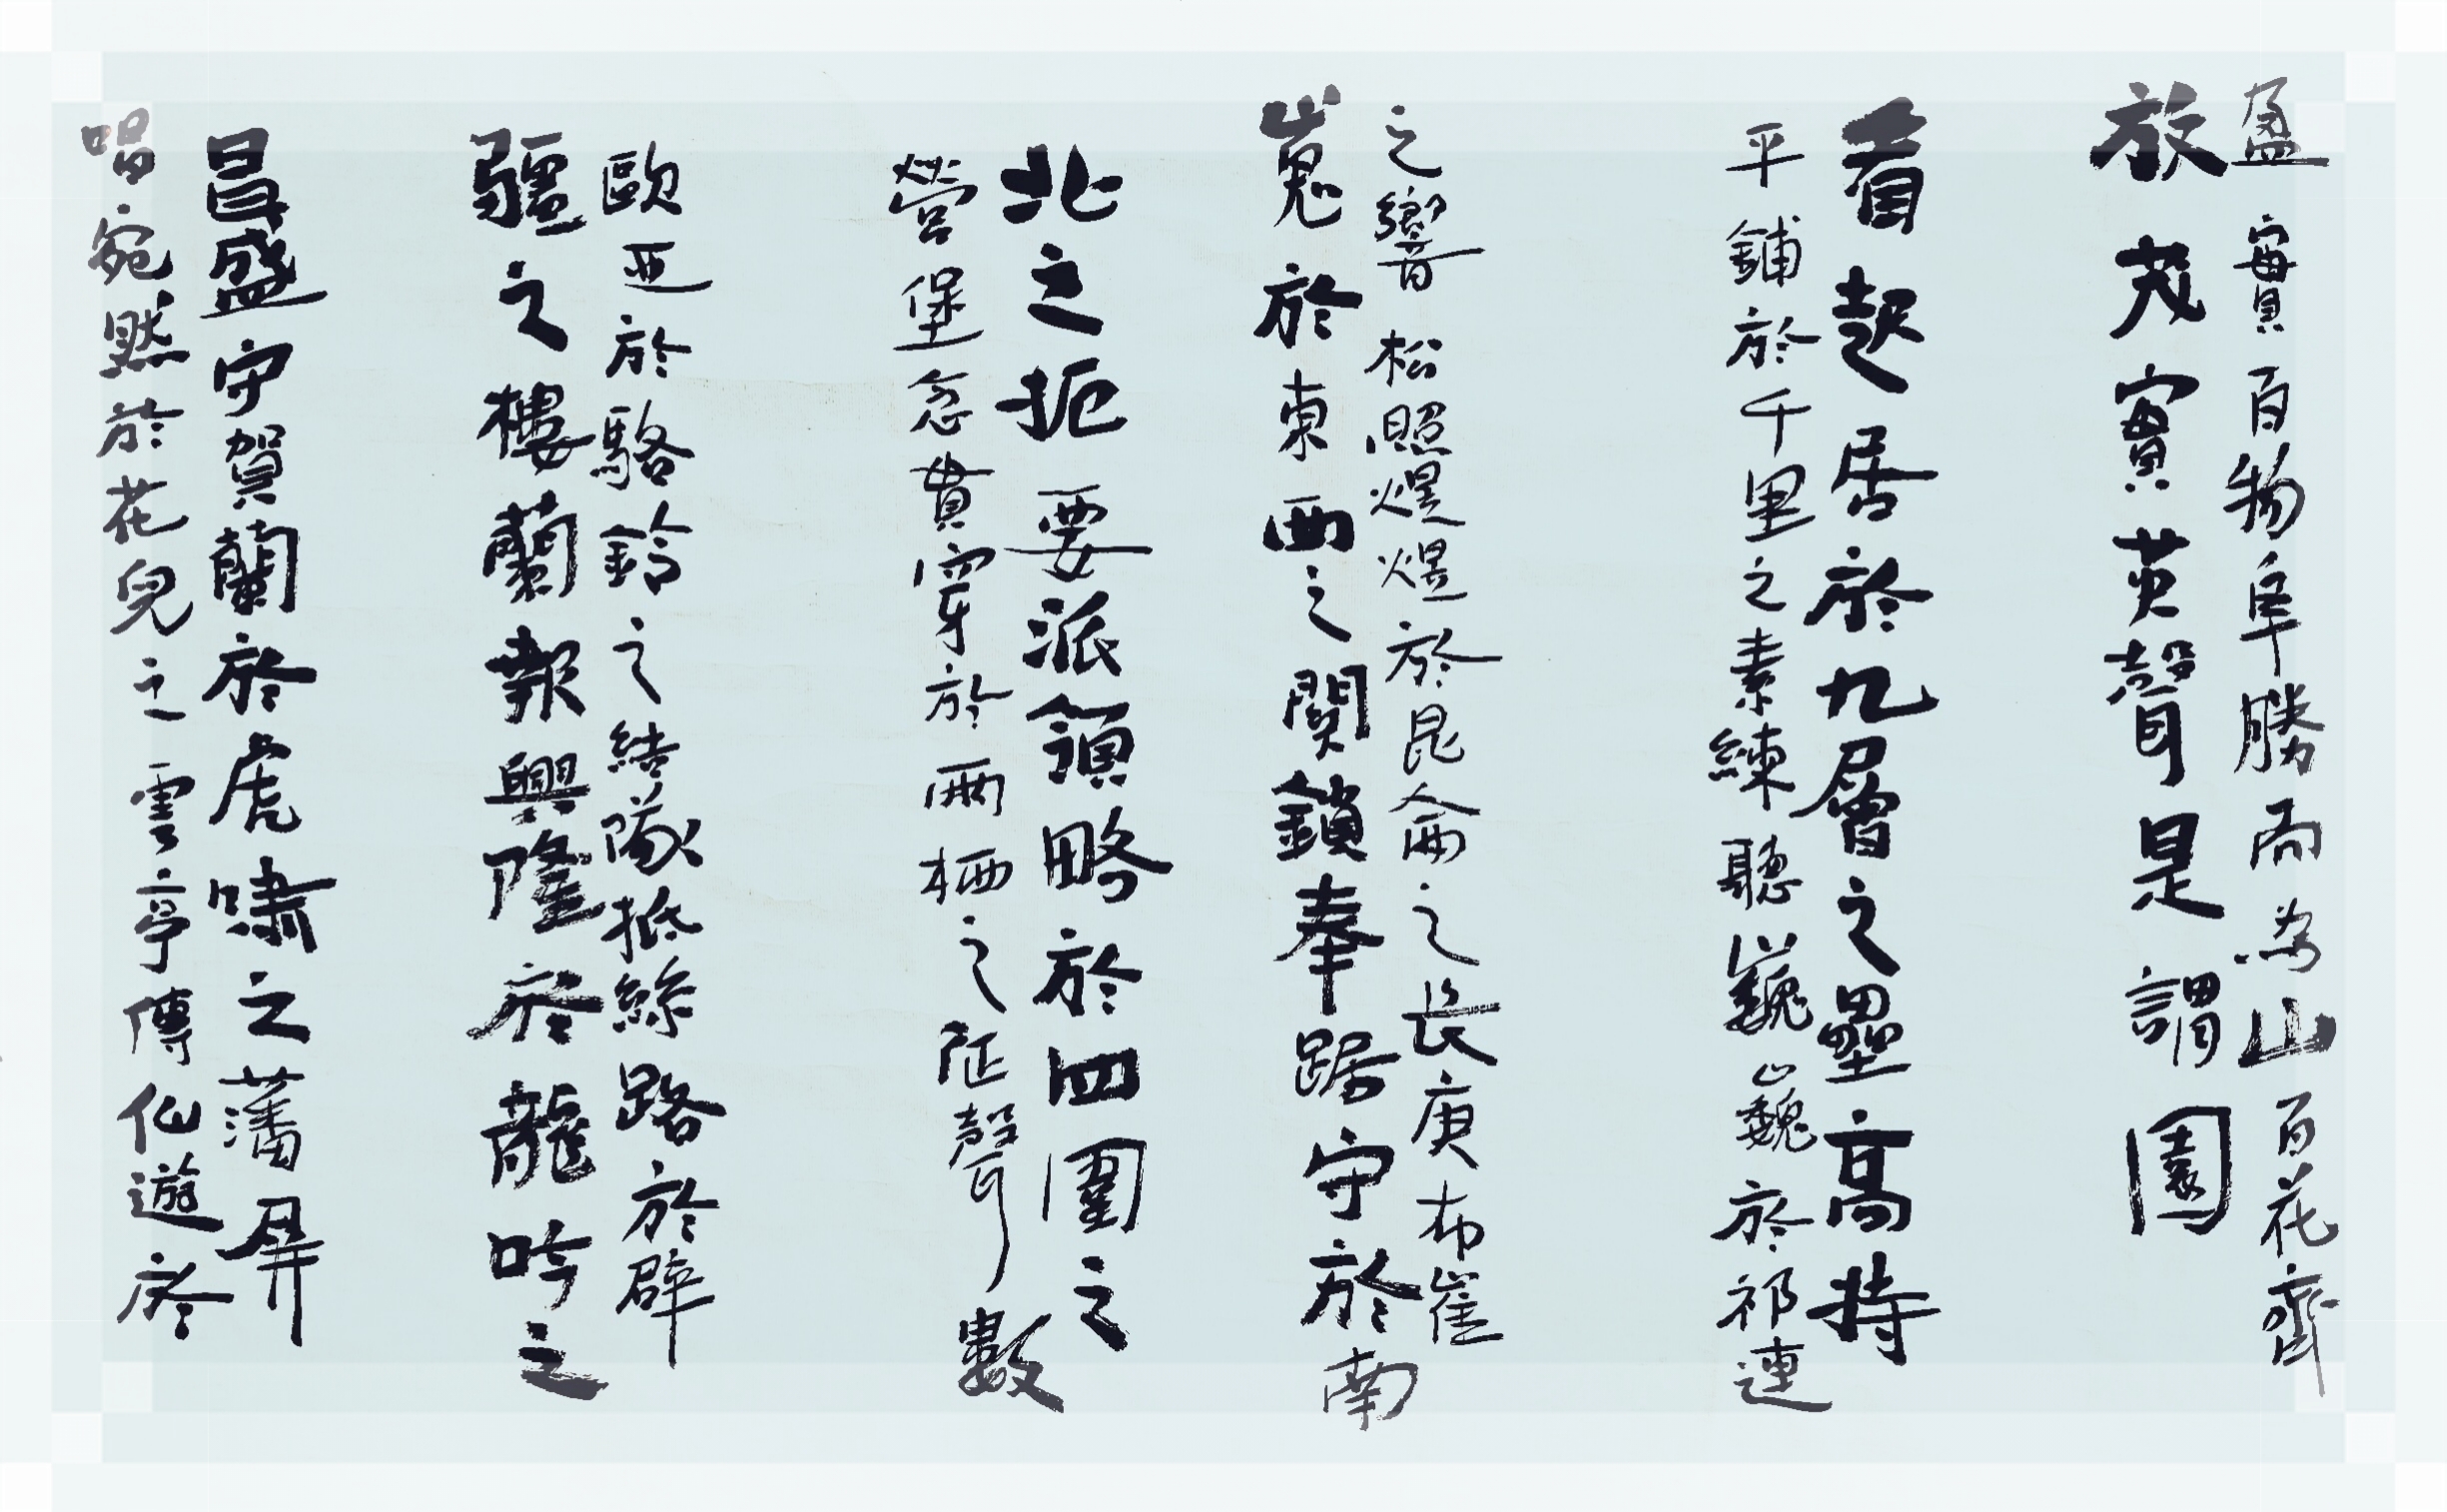 盈實百物阜勝而為山百花齊
放茂實英聲是謂園
看起居於九層之壘高持
平鋪於千里之素練聽巍巍於祁連
之響松照煜煜於昆侖之長庚布崔
嵬於東西之關鎖奉踞守於南
北之扼要派領略於四圍之數
營堡忽貫穿於兩栖之征聲
歐亞於駱鈴之結隊抵絲路於辟
疆之樓蘭報興隆於龍吟之
昌盛守賀蘭於虎嘯之藩屏
唱宛然於花兒之雲亭傳仙遊於